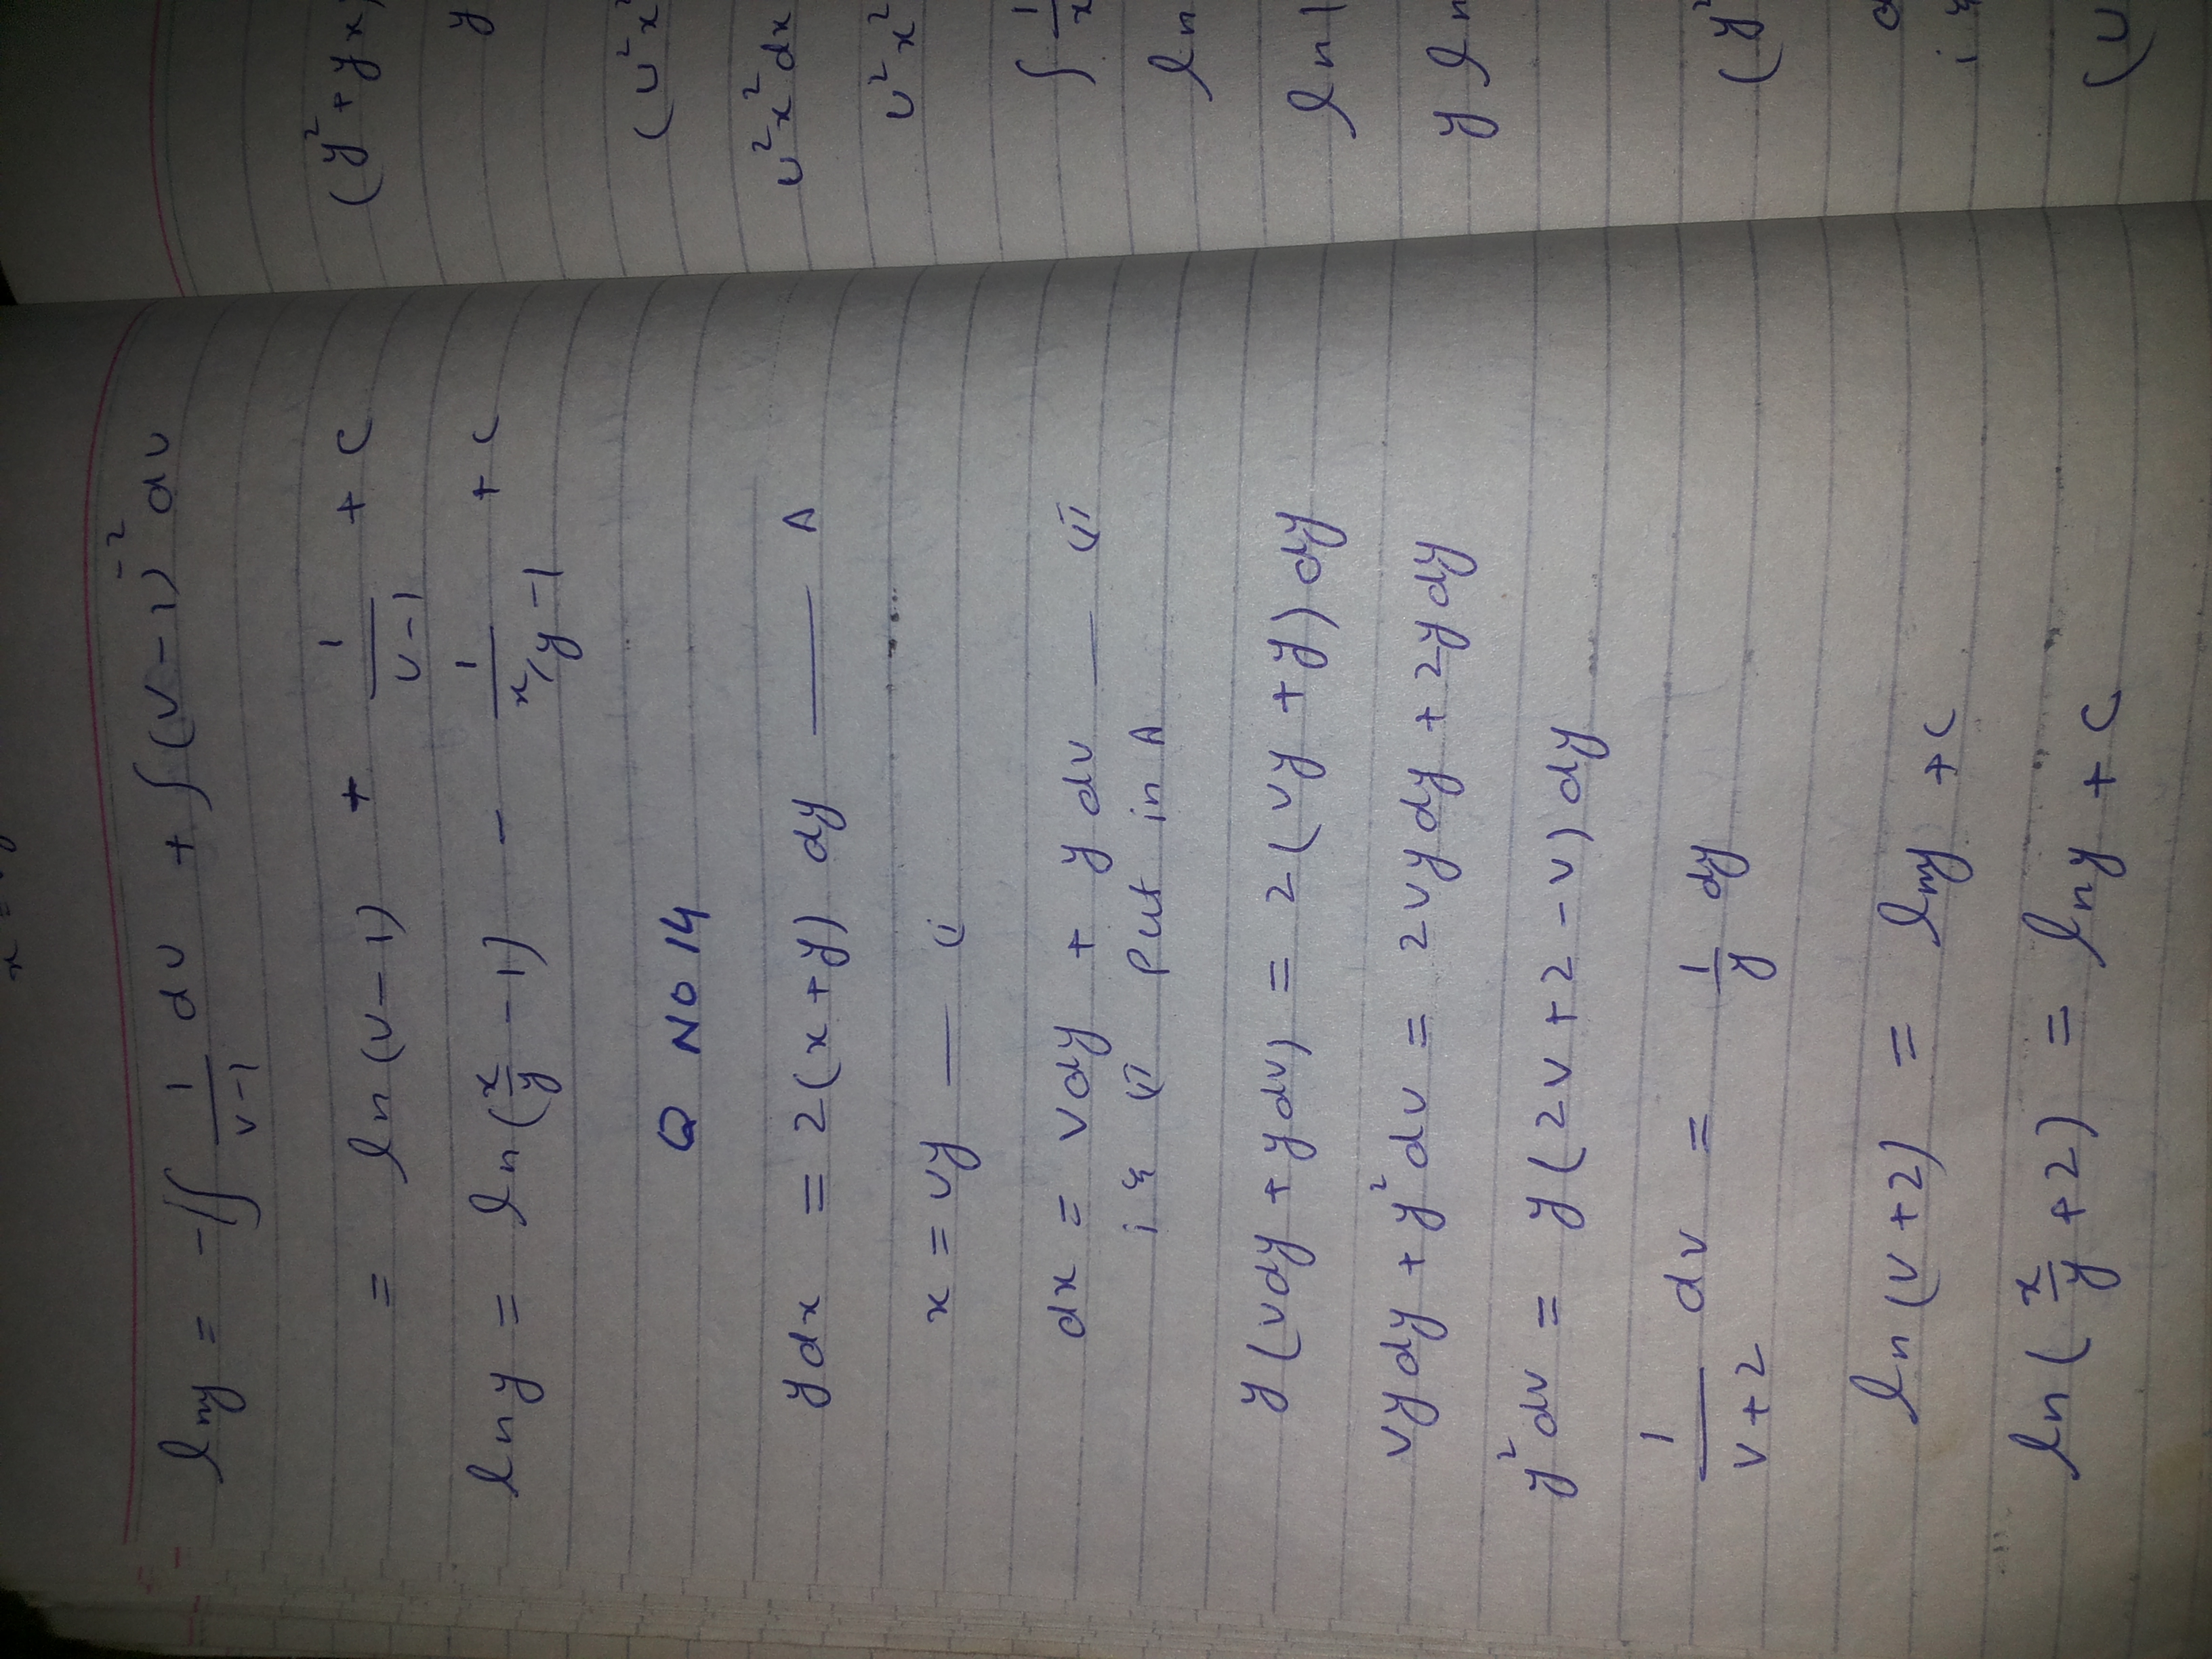 lny = -∫ 1/(v-1) dv + ∫(v-1)^-2 dv
= ln(v-1) + 1/(v-1) + c
lny = ln(x/y - 1) - 1/(x/y-1) + c
Q NO 14
ydx = 2(x+y) dy — A
x = vy — (i
dx = vdy + ydv — (ii
i & (ii Put in A
y(vdy+ydv) = 2(vy+y)dy
vydy + y²dv = 2vydy + 2ydy
y²dv = y(2v+2-v)dy
1/(v+2) dv = 1/y dy
ln(v+2) = lny + c
ln(x/y + 2) = lny + c
(y²+yx)
y
(v²x²
v²x²dx
v²x²
∫ 1/x
ln
ln
y ln
(y²
d
i &
(v